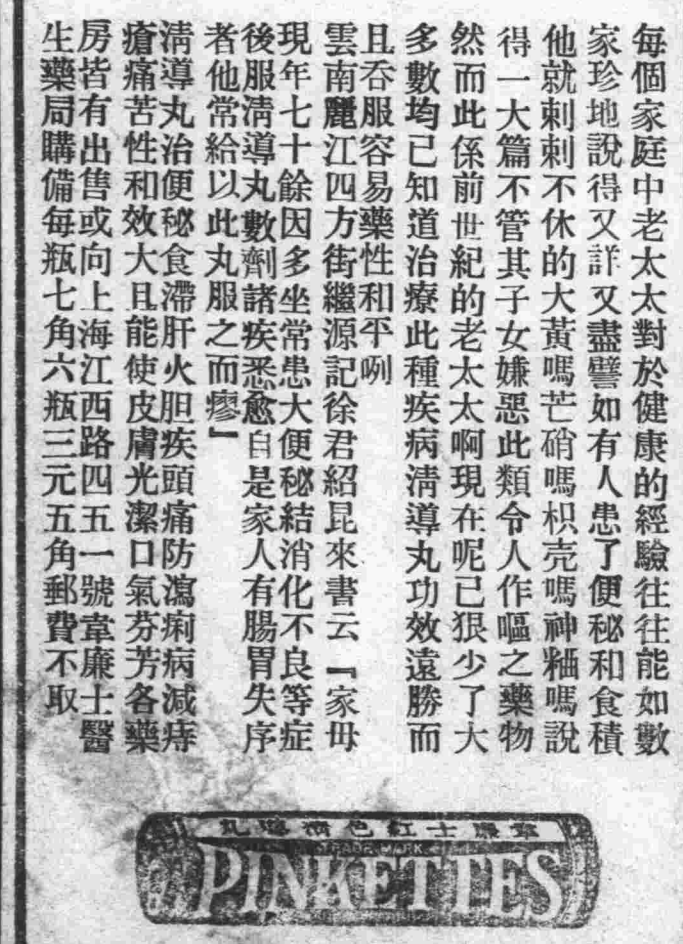 每個家庭中老太太對於健康的經驗往往能如數
家珍地說得又詳又盡譬如有人患了便秘和食積
他就剌剌不休的大黃嗎芒硝嗎枳壳嗎神粬嗎說
得一大篇不管其子女嫌惡此類令人作嘔之藥物
然而此係前世紀的老太太啊現在呢已狠少了大
多數均已知道治療此種疾病清導丸功效遠勝而
且吞服容易藥性和平咧
雲南麗江四方街繼源記徐君紹昆來書云『家母
現年七十餘因多坐常患大便秘結消化不良等症
後服清導丸數劑諸疾悉愈自是家人有腸胃失序
者他常給以此丸服之而瘳』
清導丸治便秘食滯肝火胆疾頭痛防瀉痢病減痔
瘡痛苦性和效大且能使皮膚光潔口氣芬芳各藥
房皆有出售或向上海江西路四五一號韋廉士醫
生藥局購備每瓶七角六瓶三元五角郵費不取
韋廉士紅色清導丸
TRADE MARK
PINKETTES